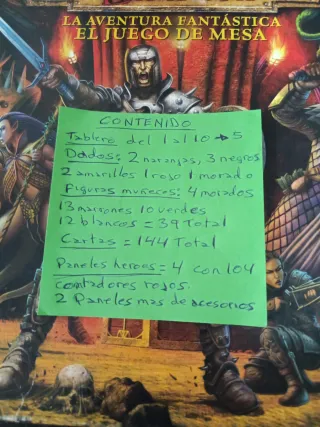 LA AVENTURA FANTÁSTICA
EL JUEGO DE MESA
CONTENIDO
Tablero del 1 al 10 → 5
Dados: 2 naranjas, 3 negros
2 amarillos 1 rojo 1 morado
Figuras muñecos: 4 morados
13 marrones 10 verdes
12 blancos = 39 Total
Cartas = 144 Total
Paneles heroes = 4 con 104
contadores rojos.
2 Paneles mas de acesorios